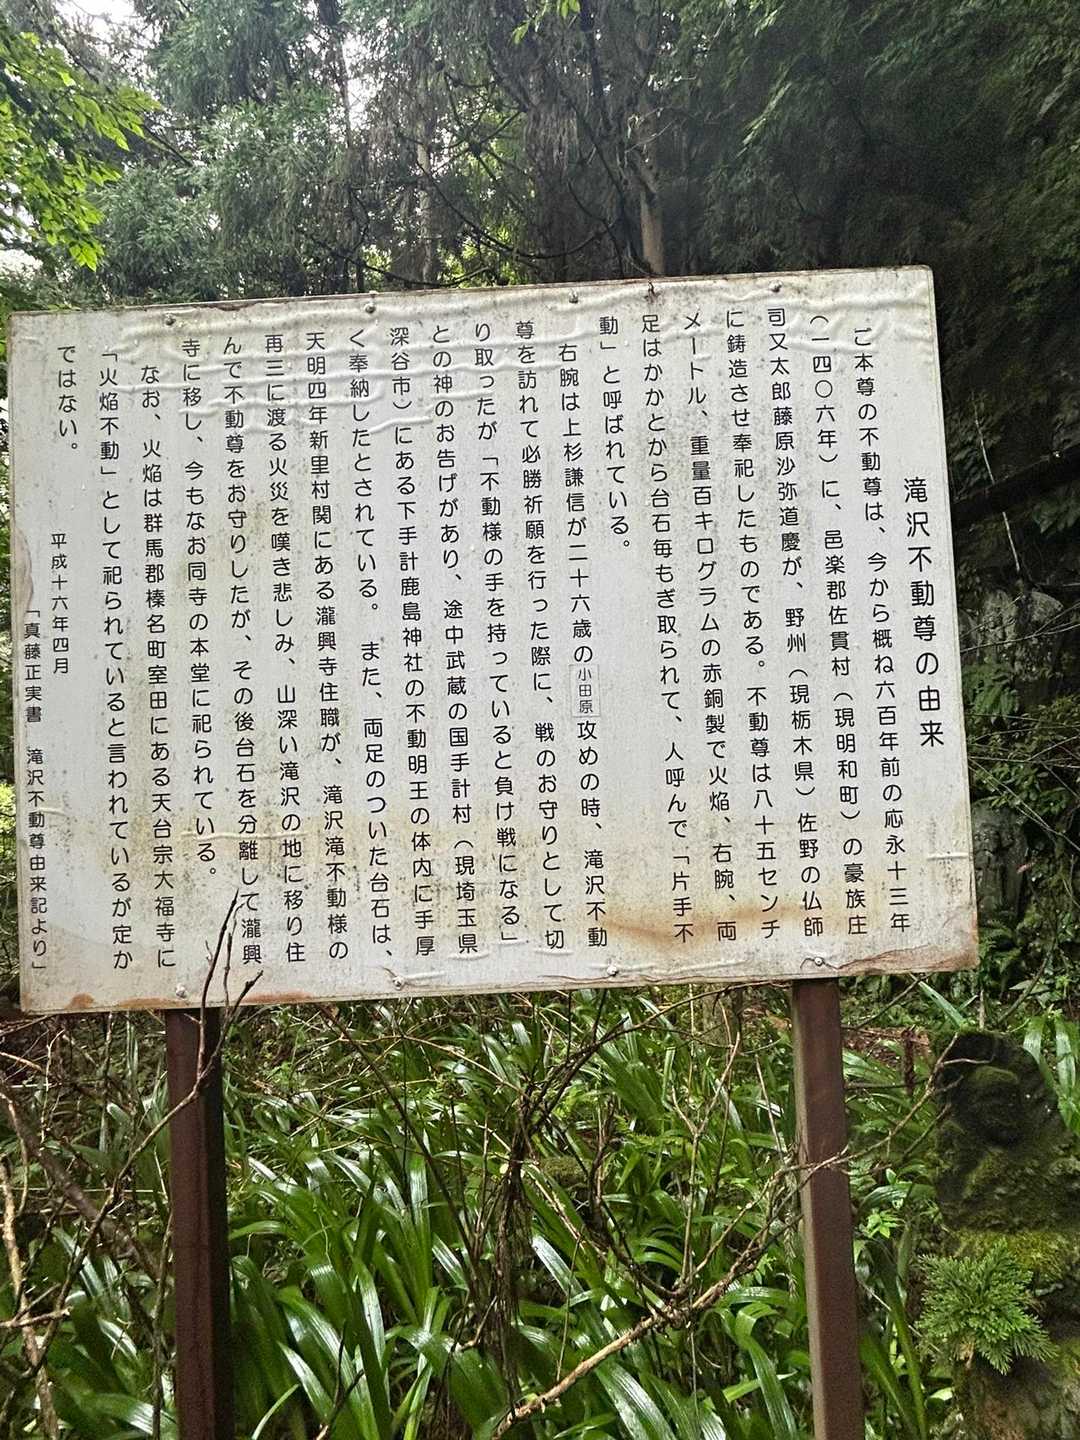 滝沢不動尊の由来
ご本尊の不動尊は、今から概ね六百年前の応永十三年
(一四〇六年)に、邑楽郡佐貫村(現明和町)の豪族庄
司又太郎藤原沙弥道慶が、野州(現栃木県)佐野の仏師
に鋳造させ奉祀したものである。不動尊は八十五センチ
メートル、重量百キログラムの赤銅製で火焔、右腕、両
足はかかとから台石毎もぎ取られて、人呼んで「片手不
動」と呼ばれている。
右腕は上杉謙信が二十六歳の小田原攻めの時、滝沢不動
尊を訪れて必勝祈願を行った際に、戦のお守りとして切
り取ったが「不動様の手を持っていると負け戦になる」
との神のお告げがあり、途中武蔵の国手計村(現埼玉県
深谷市)にある下手計鹿島神社の不動明王の体内に手厚
く奉納したとされている。また、両足のついた台石は、
天明四年新里村関にある瀧興寺住職が、滝沢滝不動様の
再三に渡る火災を嘆き悲しみ、山深い滝沢の地に移り住
んで不動尊をお守りしたが、その後台石を分離して瀧興
寺に移し、今もなお同寺の本堂に祀られている。
なお、火焔は群馬郡榛名町室田にある天台宗大福寺に
「火焔不動」として祀られていると言われているが定か
ではない。
平成十六年四月
「真藤正実書 滝沢不動尊由来記より」